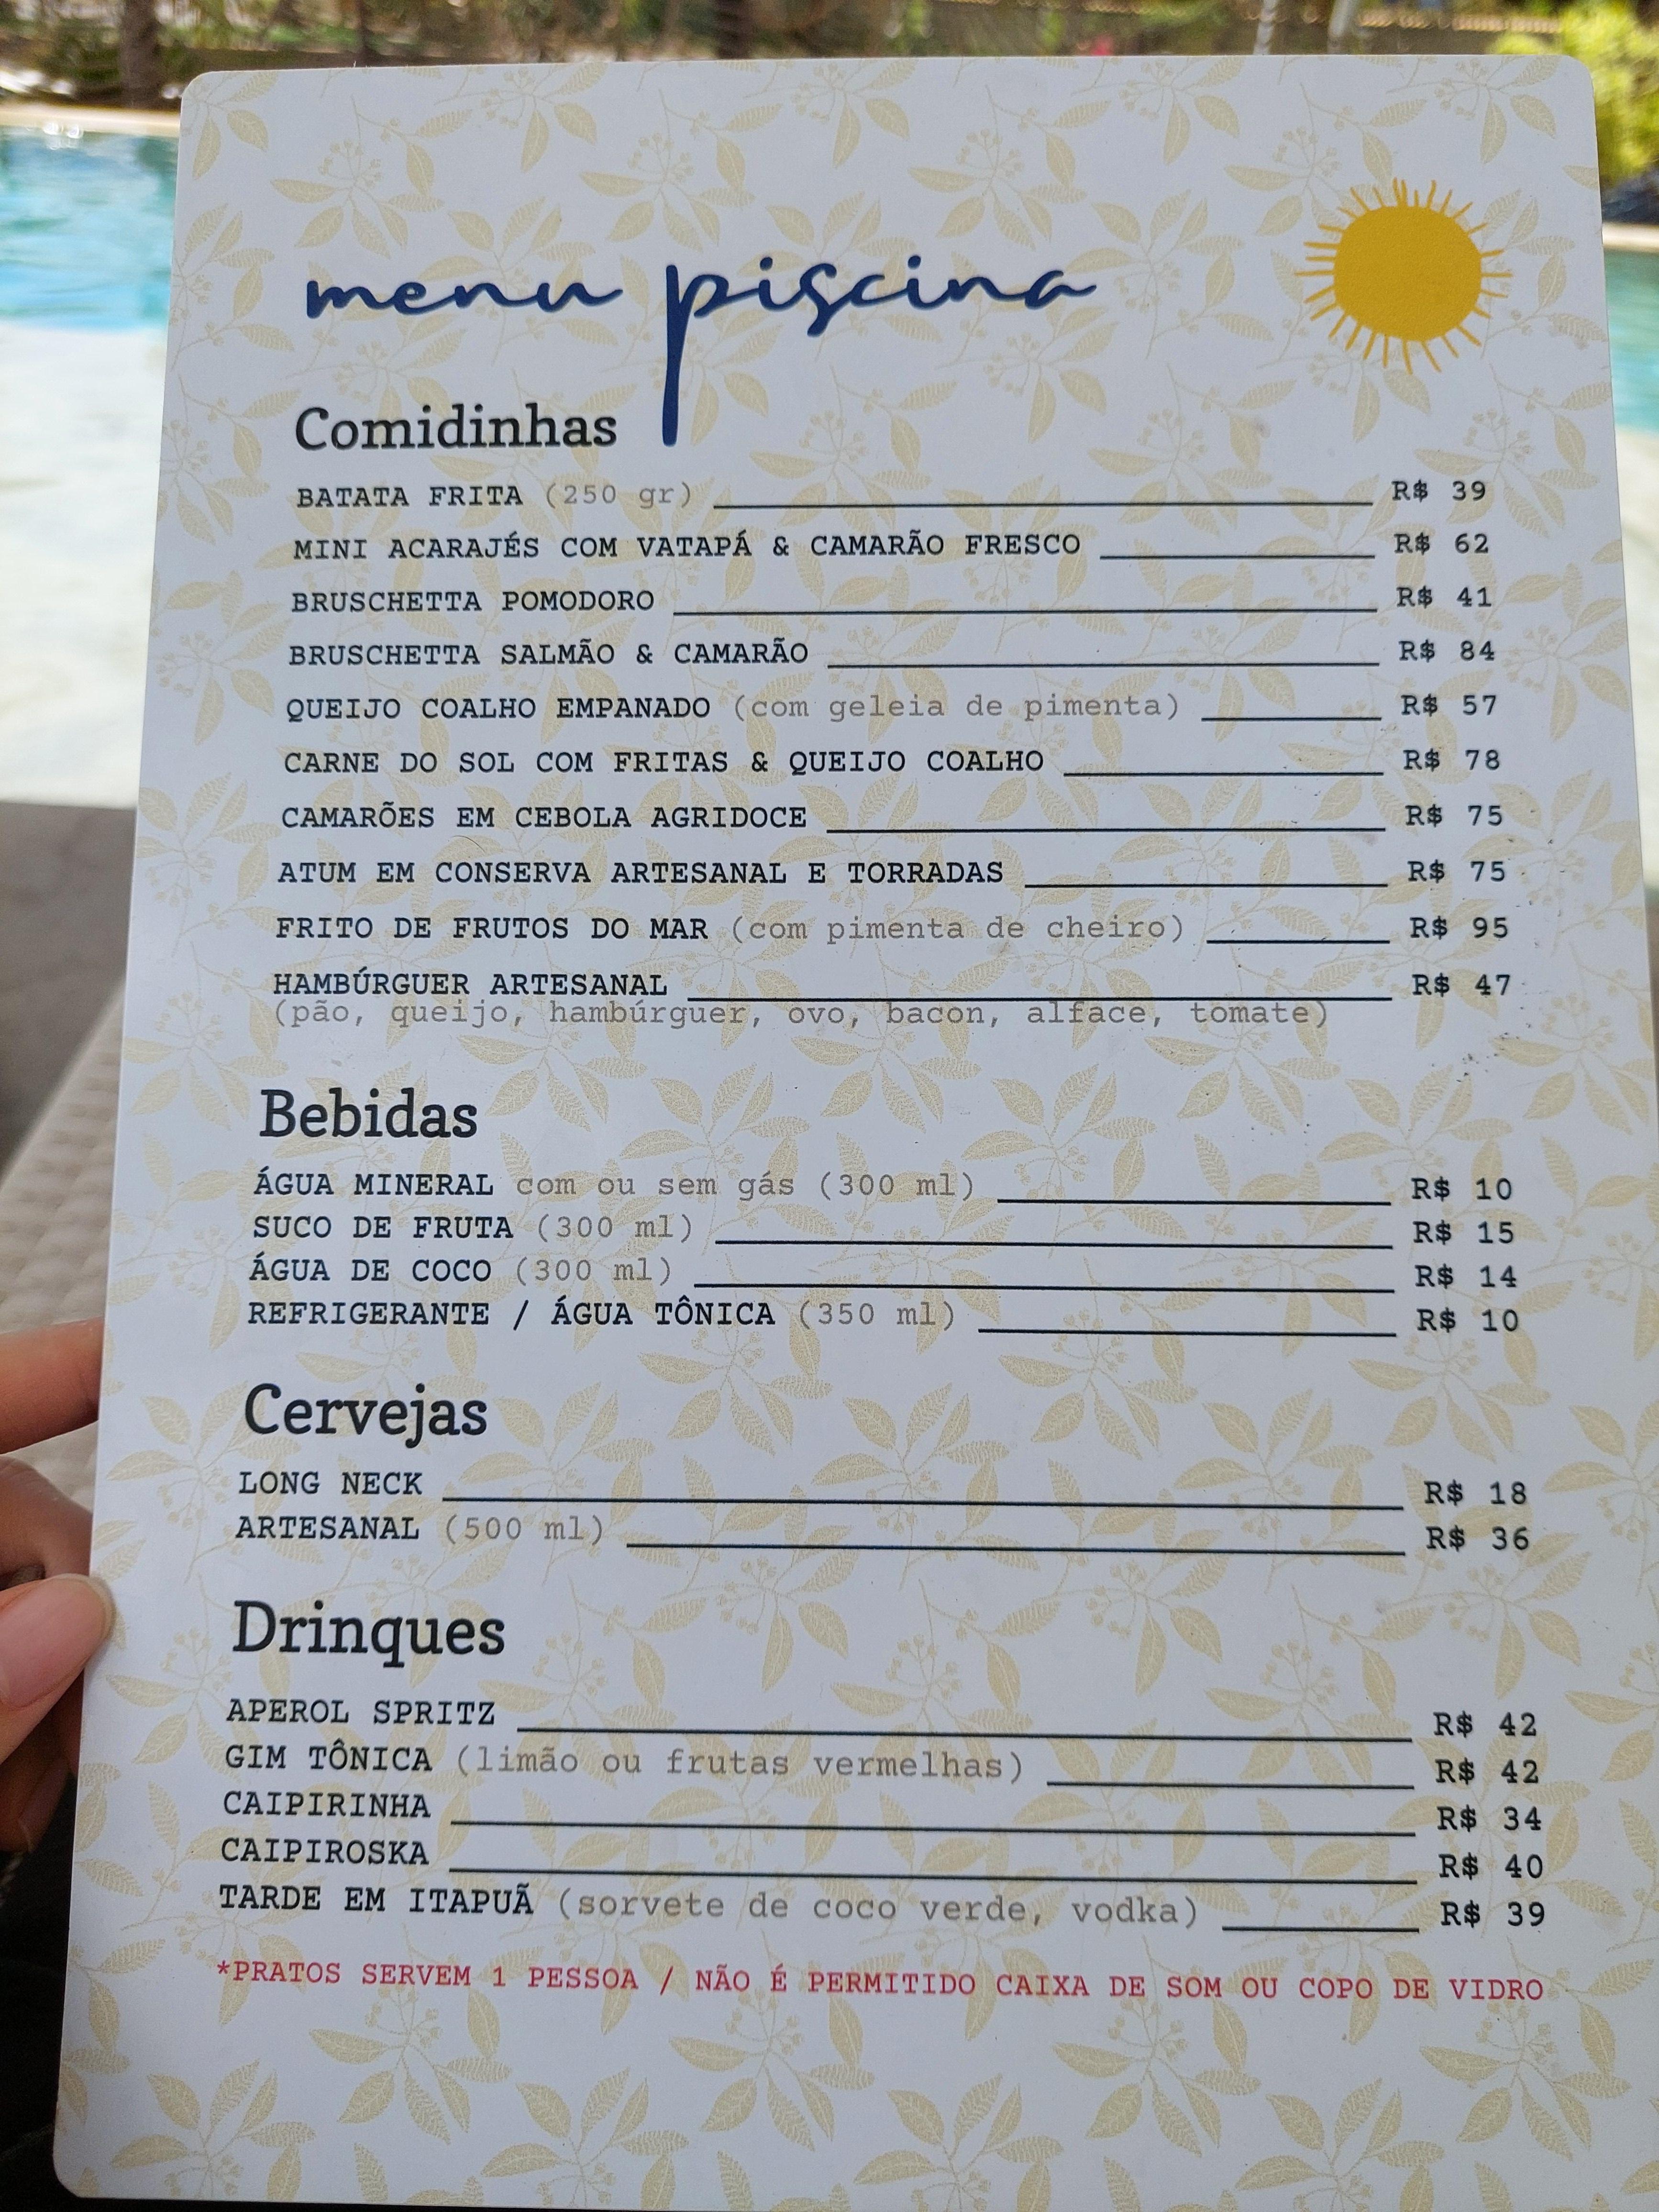 menu piscina
Comidinhas
BATATA FRITA (250 gr) R$ 39
MINI ACARAJÉS COM VATAPÁ & CAMARÃO FRESCO R$ 62
BRUSCHETTA POMODORO R$ 41
BRUSCHETTA SALMÃO & CAMARÃO R$ 84
QUEIJO COALHO EMPANADO (com geleia de pimenta) R$ 57
CARNE DO SOL COM FRITAS & QUEIJO COALHO R$ 78
CAMARÕES EM CEBOLA AGRIDOCE R$ 75
ATUM EM CONSERVA ARTESANAL E TORRADAS R$ 75
FRITO DE FRUTOS DO MAR (com pimenta de cheiro) R$ 95
HAMBÚRGUER ARTESANAL R$ 47
(pão, queijo, hambúrguer, ovo, bacon, alface, tomate)
Bebidas
ÁGUA MINERAL com ou sem gás (300 ml) R$ 10
SUCO DE FRUTA (300 ml) R$ 15
ÁGUA DE COCO (300 ml) R$ 14
REFRIGERANTE / ÁGUA TÔNICA (350 ml) R$ 10
Cervejas
LONG NECK R$ 18
ARTESANAL (500 ml) R$ 36
Drinques
APEROL SPRITZ R$ 42
GIM TÔNICA (limão ou frutas vermelhas) R$ 42
CAIPIRINHA R$ 34
CAIPIROSKA R$ 40
TARDE EM ITAPUÃ (sorvete de coco verde, vodka) R$ 39
*PRATOS SERVEM 1 PESSOA / NÃO É PERMITIDO CAIXA DE SOM OU COPO DE VIDRO